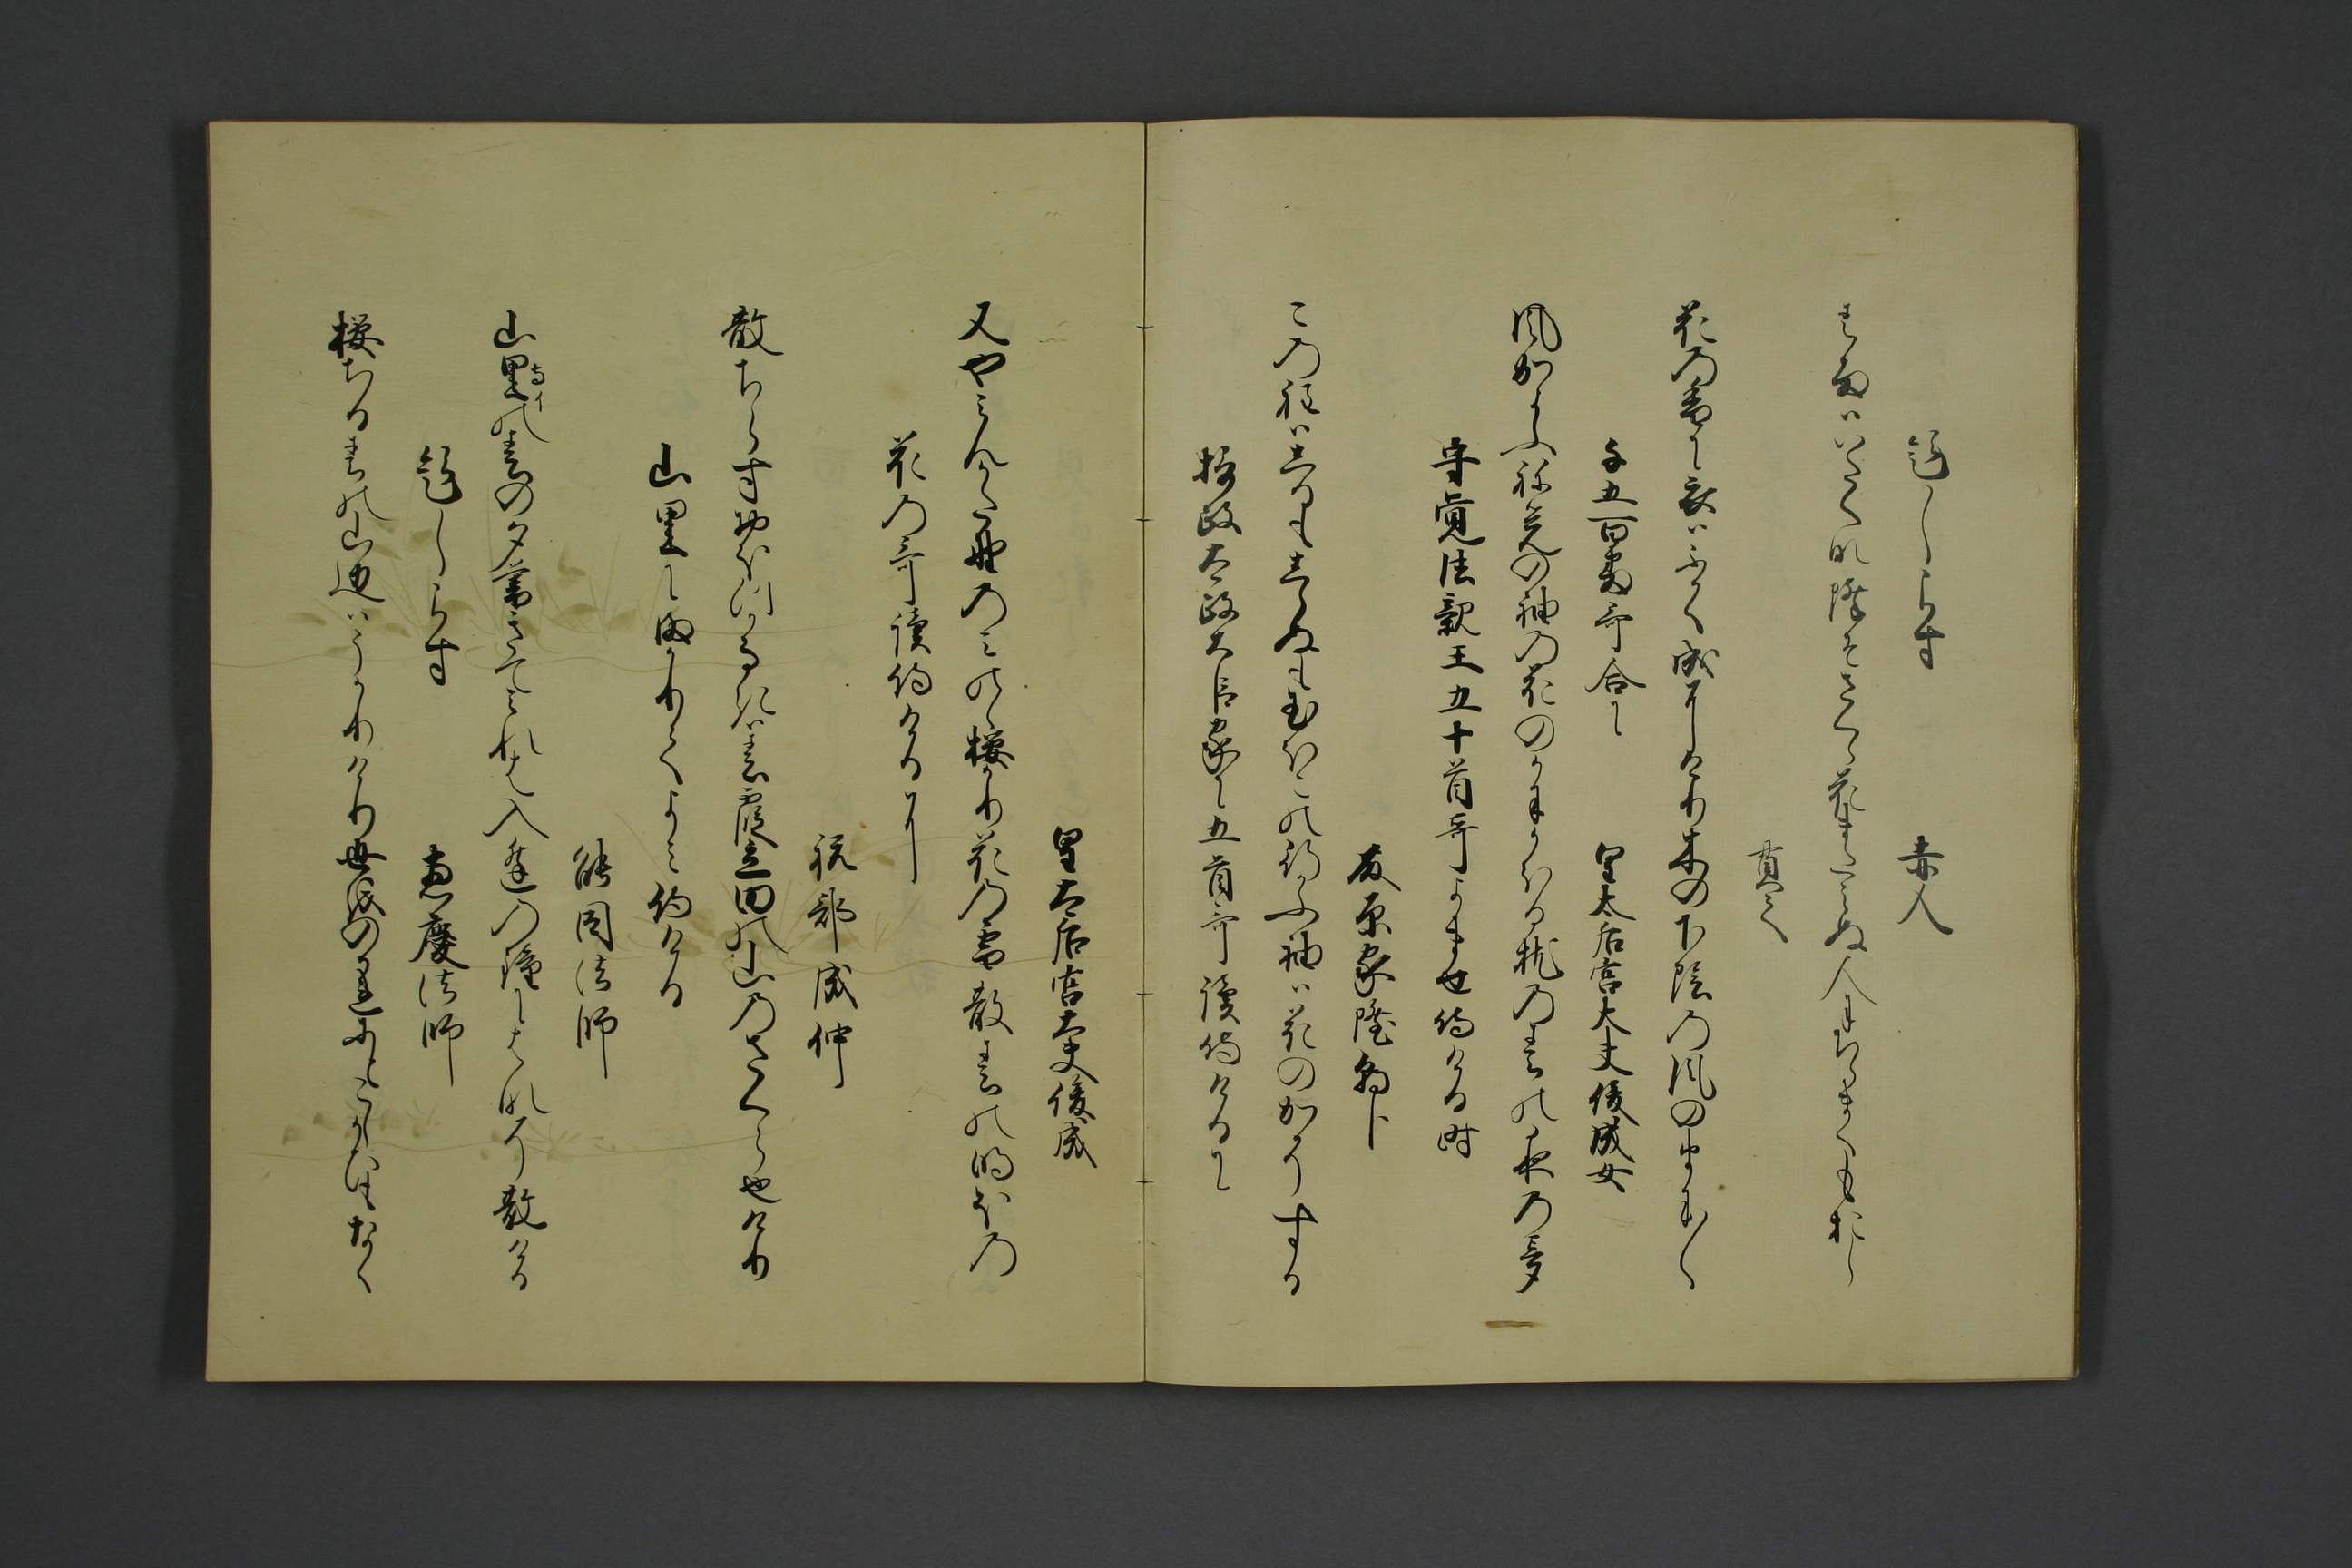 題しらす　赤人
春雨はいたくな降そさくら花またみぬ人にちらまくもおし
貫之
花の香に衣はふかく成にけり木の下陰の風のまに〱
千五百番哥合に　皇太后宮大夫俊成女
風かよふね覚の袖の花のかにかほる枕の春の夜の夢
守覚法親王五十首哥よませ侍ける時
藤原家隆朝臣
この程はしるもしらぬも玉ほこの行かふ袖は花のかそする
摂政太政大臣家に五首哥読侍けるに
皇太后宮大夫俊成
又やみんかた野のみのゝ桜かり花の雪散春の明ほの
花の哥読侍けるに
祝部成仲
散ちらすおほつかなきは春霞立田の山のさくら也けり
山里にまかりてよみ侍ける
能因法師
山里の春の夕暮きてみれは入逢の鐘に花そ散ける
寺イ
題しらす　恵慶法師
桜ちる春の山辺はうかりけり世をのかれにとこしかひもなく